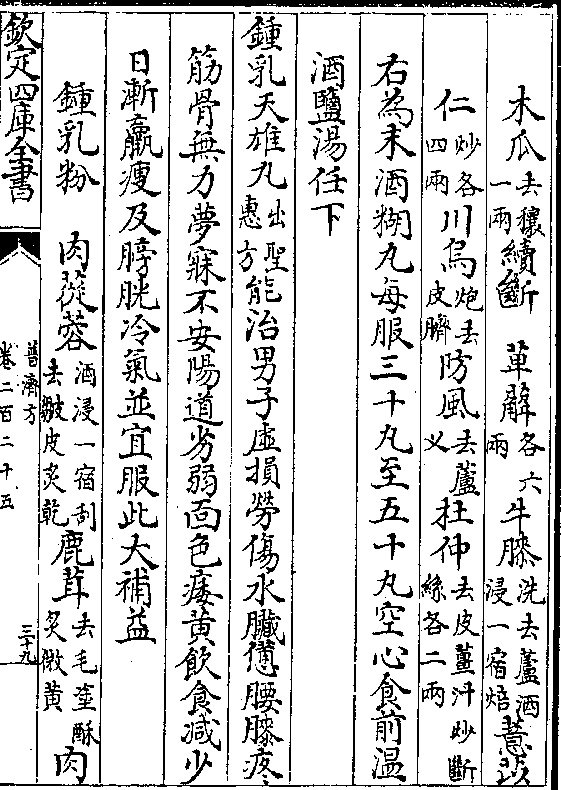 木瓜去穰一兩續斷　萆薢各六兩牛膝洗去蘆酒浸一宿焙薏苡
仁炒各四兩川烏炮去皮臍防風去蘆义杜仲去皮薑汁炒斷絲各二兩
右為末酒糊丸每服三十丸至五十丸空心食前温
酒鹽湯任下
鍾乳天雄丸出聖惠方能治男子虛損勞傷水臟憊腰膝疼
筋骨無力夢寐不安陽道劣弱面色痿黄飲食減少
日漸羸瘦及膀胱冷氣並宜服此大補益
鍾乳粉　肉蓯蓉酒浸一宿刮去皴皮炙乾鹿茸去毛塗酥炙微黄肉
欽定四庫全書
普濟方
卷二百二十五
三十九